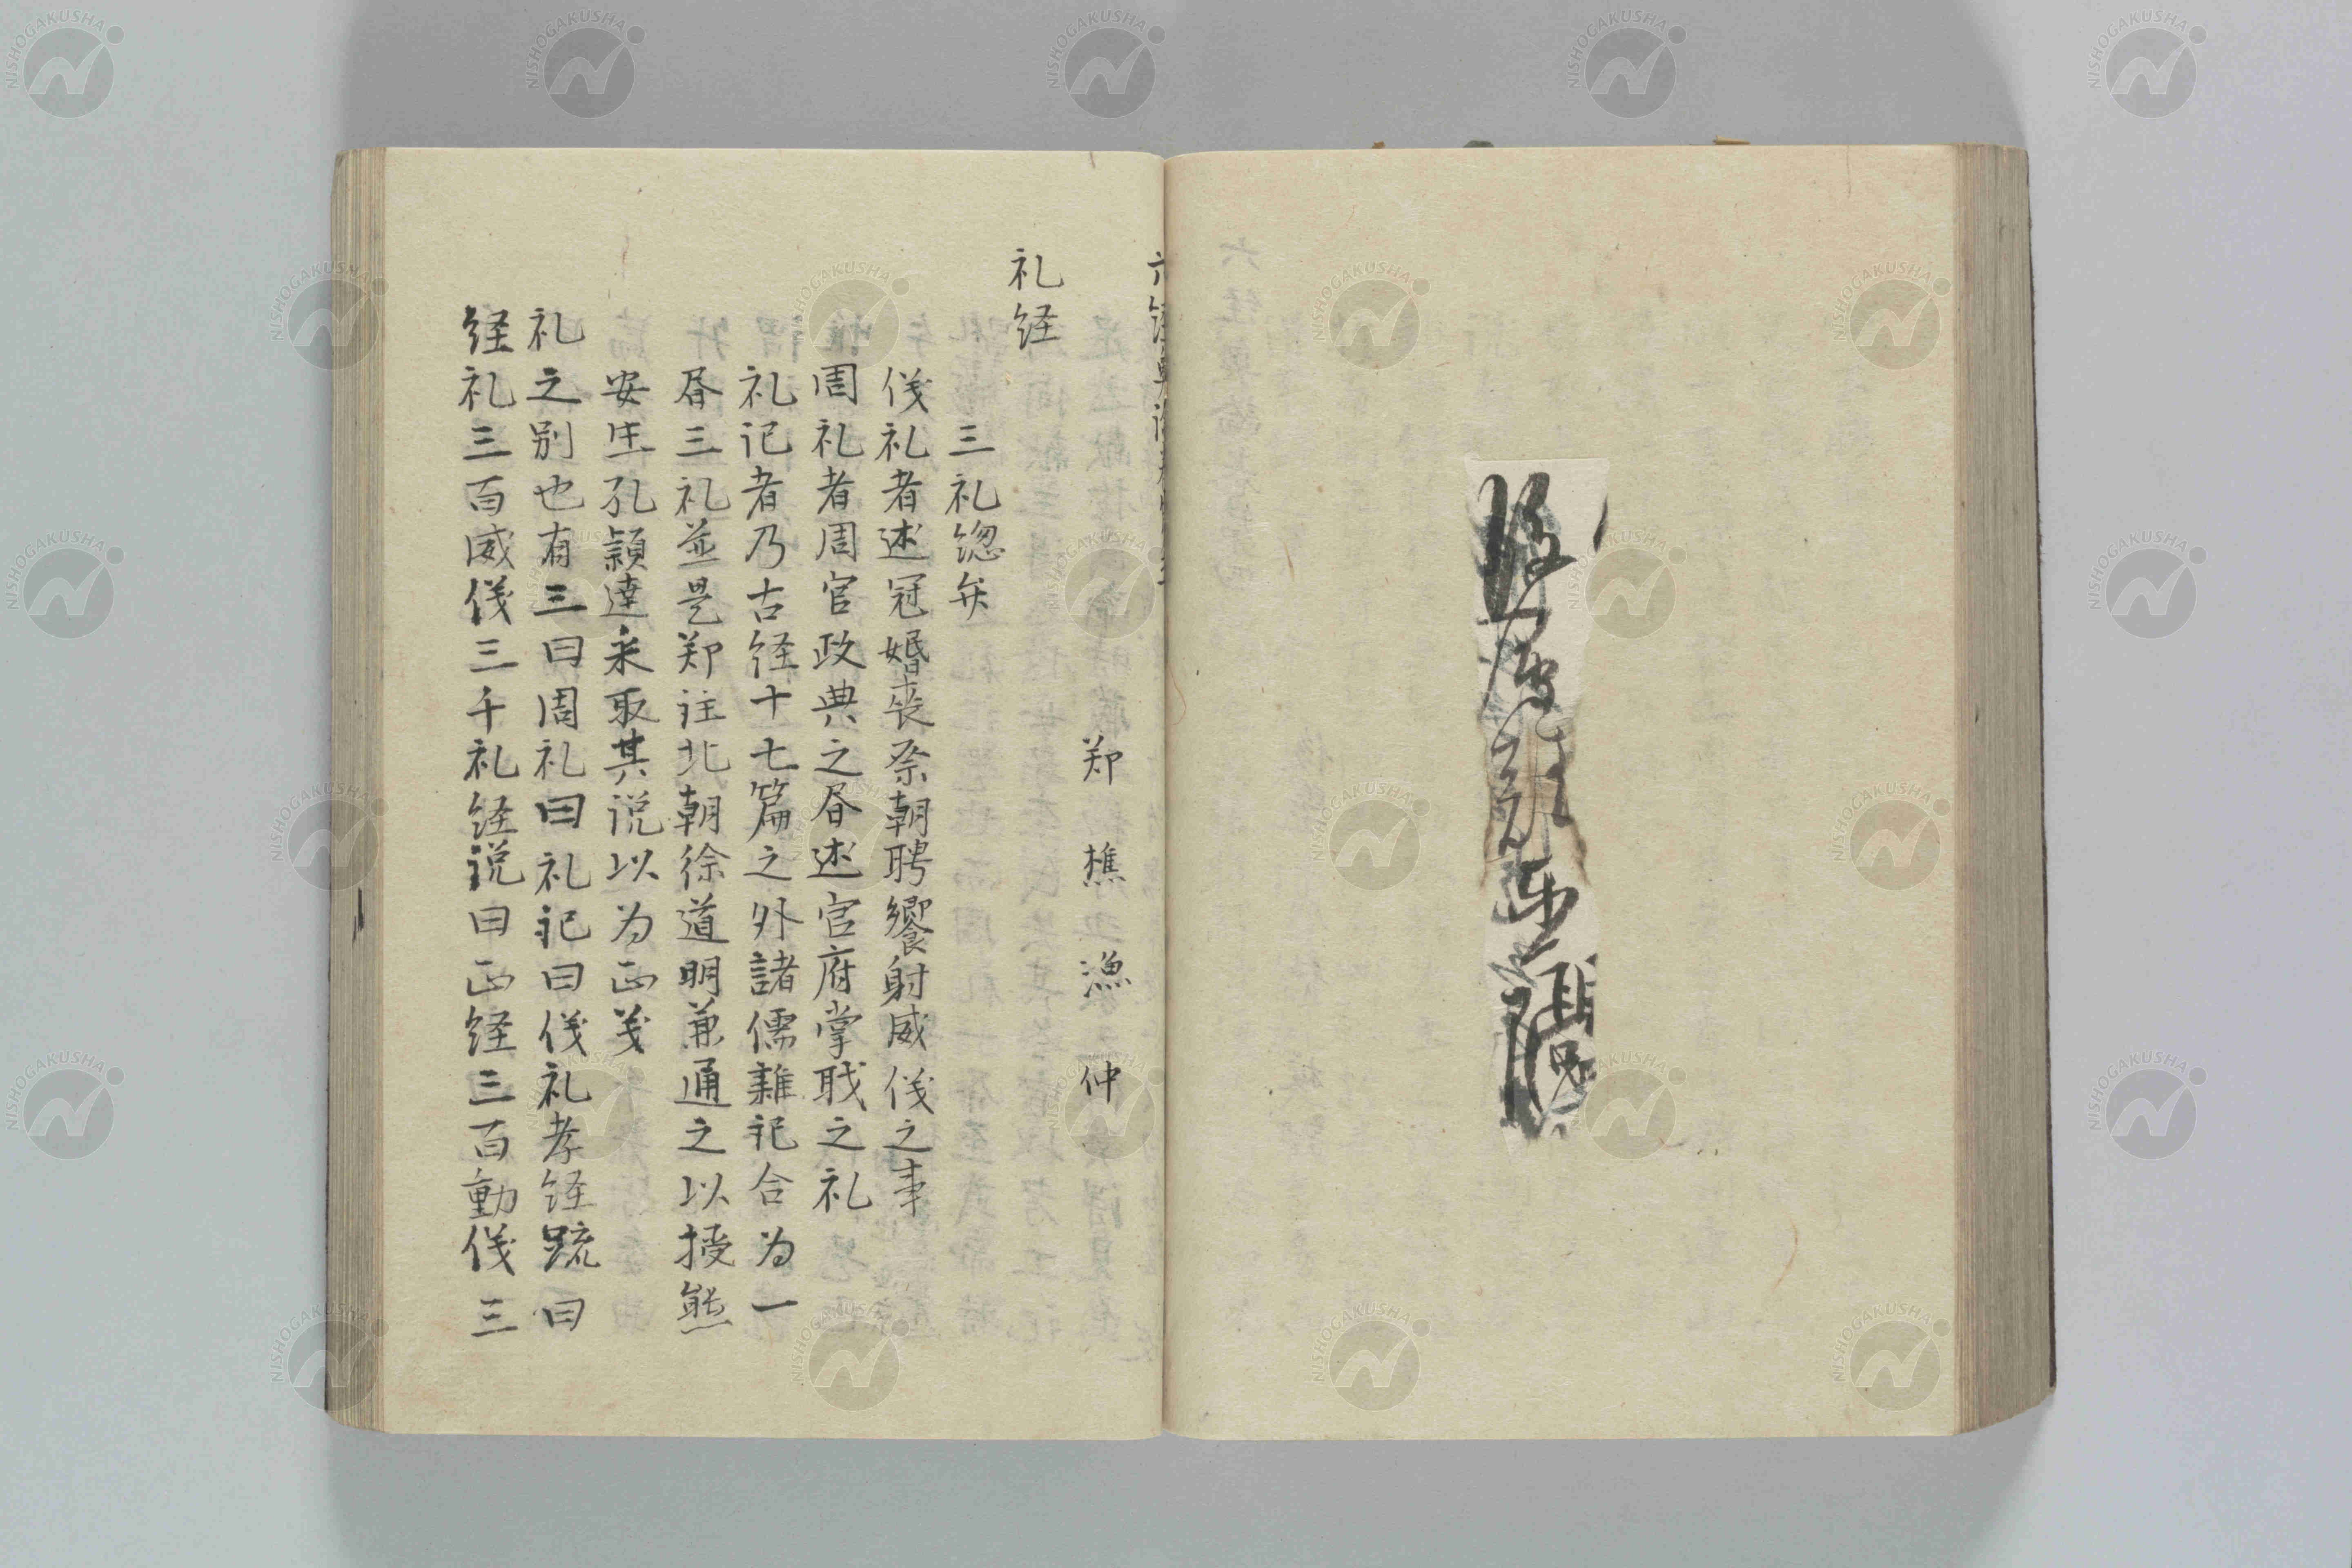 六経奥論巻第五
郑樵漁仲
礼経
三礼總弁
仪礼者述冠婚丧祭朝聘饗射威仪之事
周礼者周官政典之昏述官府掌职之礼
礼记者乃古経十七篇之外諸儒雜记合为一
昏三礼並是郑注北朝徐道明兼通之以授熊
安生孔穎達采取其说以为正义
礼之别也有三曰周礼曰礼记曰仪礼孝经䟽曰
経礼三百威仪三千礼経说曰正経三百動仪三
NISHOGAKUSHA